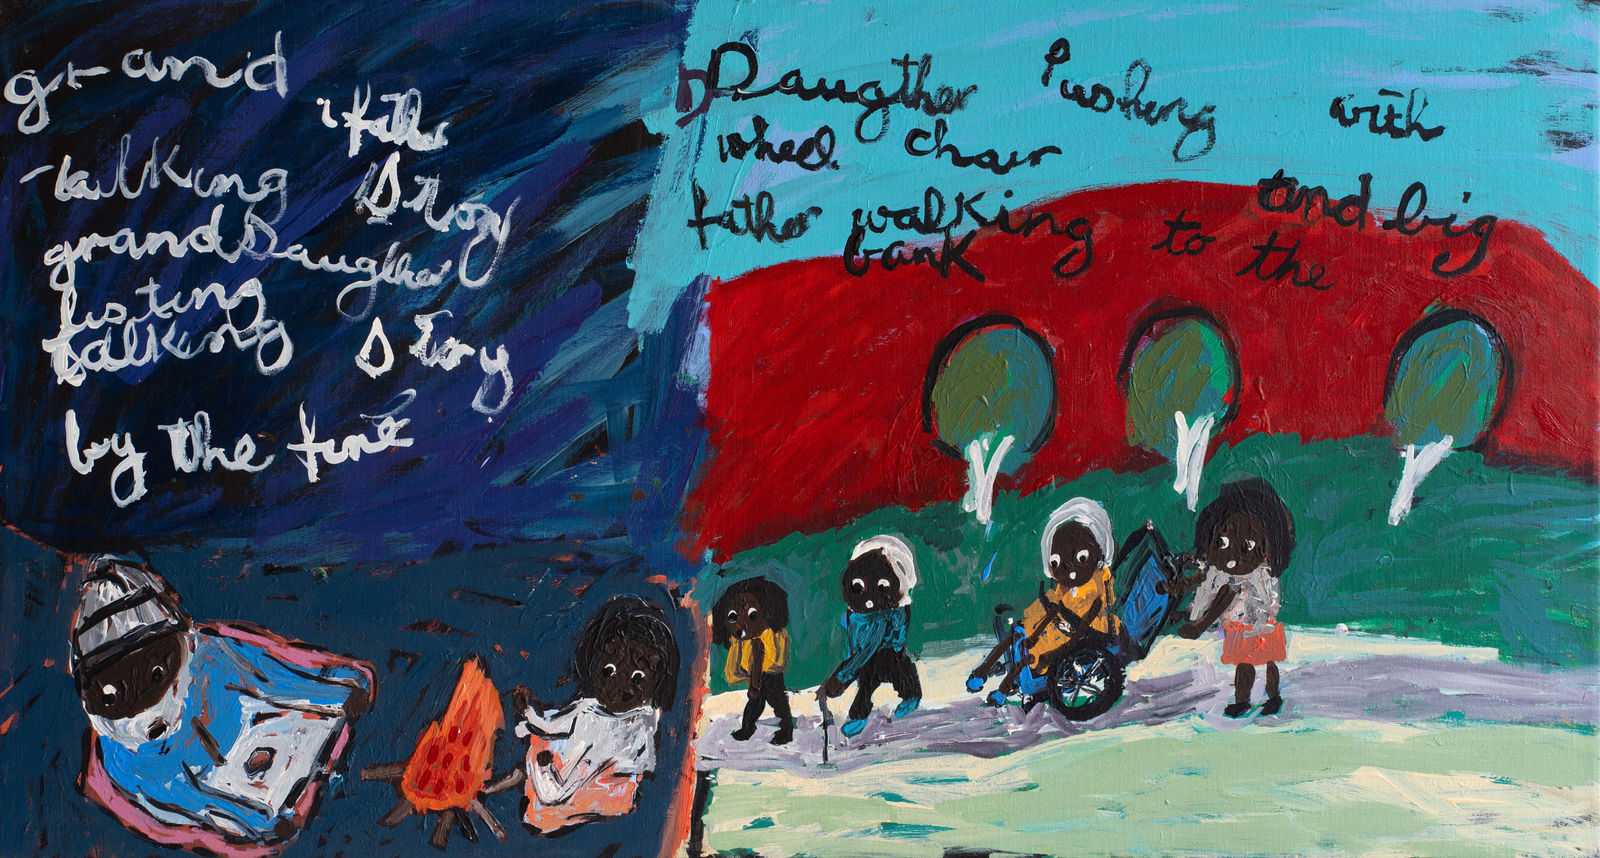 grand
father
talking Stroy
grandDaughter
listing
talking Story
by the fire
Daugther Pushing with
wheel chair
and big
father walking to the
bank